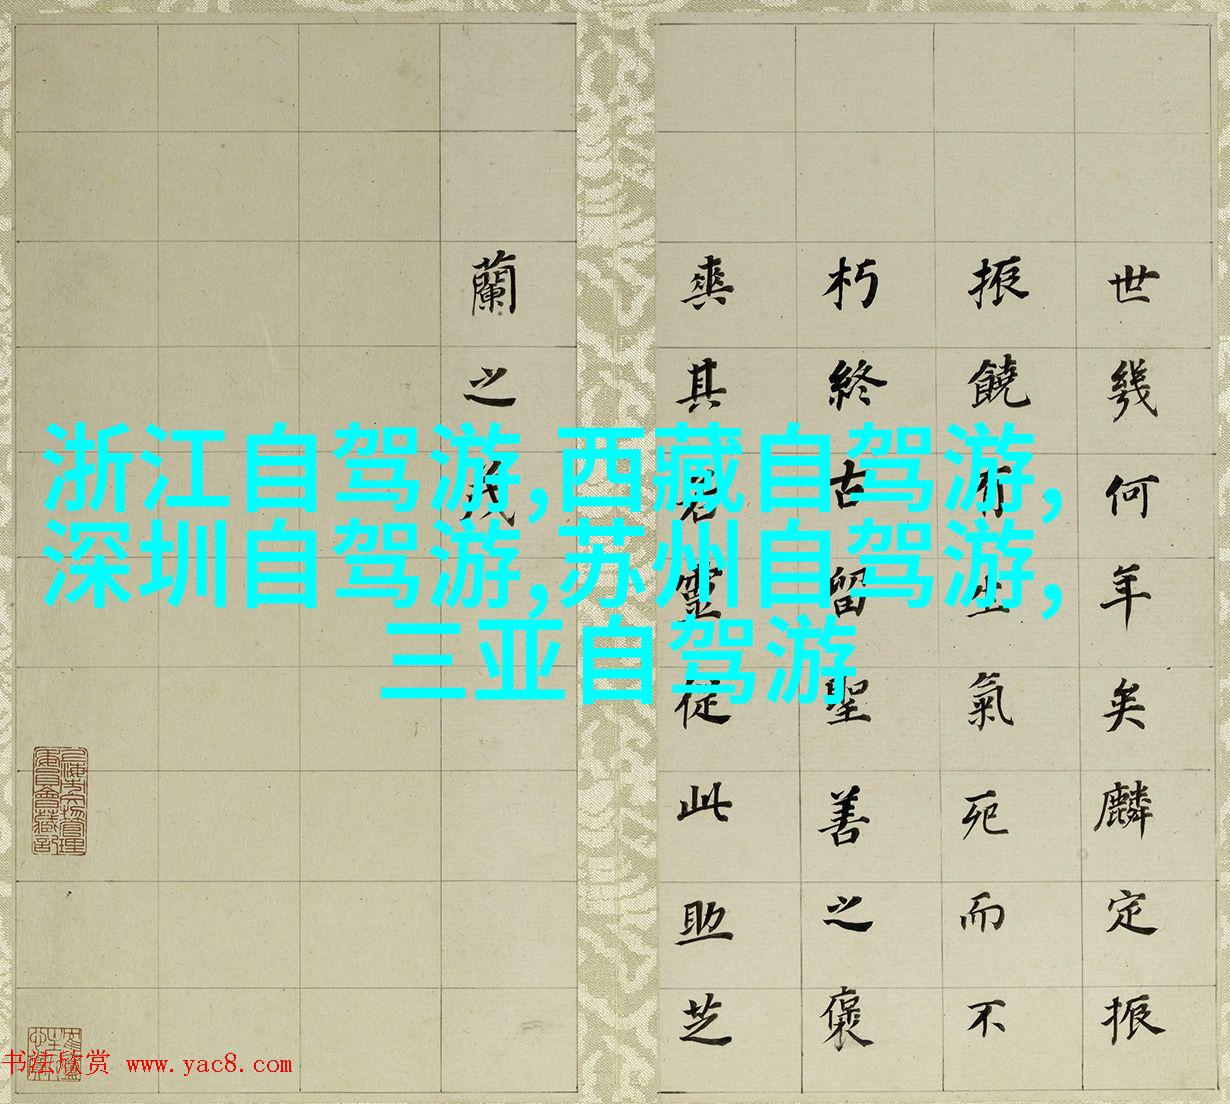 世幾何年矣麟定振
振饒有生氣死而不
朽終古留聖善之褒
爽其靈從此助芝
蘭之茂
浙江自驾游,西藏自驾游,
深圳自驾游,苏州自驾游,
三亚自驾游
书法欣赏 www.yac8.com